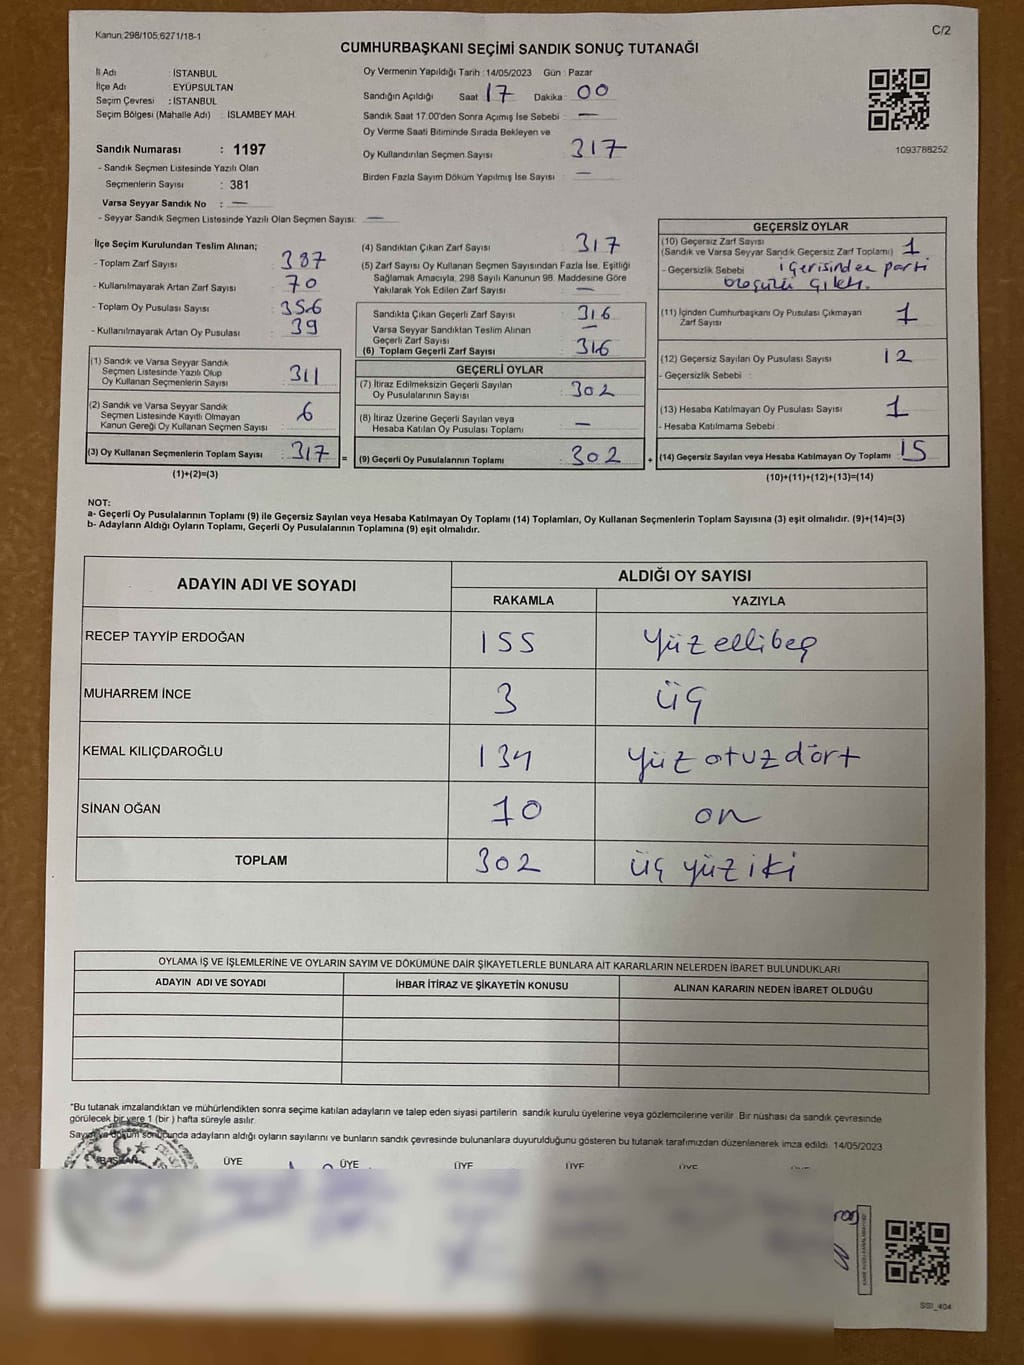 Kanun:298/105,6271/18-1
C/2
CUMHURBAŞKANI SEÇİMİ SANDIK SONUÇ TUTANAĞI
İl Adı : İSTANBUL
İlçe Adı : EYÜPSULTAN
Seçim Çevresi : İSTANBUL
Seçim Bölgesi (Mahalle Adı) : İSLAMBEY MAH.
Sandık Numarası : 1197
- Sandık Seçmen Listesinde Yazılı Olan
Seçmenlerin Sayısı : 381
Varsa Seyyar Sandık No : —
- Seyyar Sandık Seçmen Listesinde Yazılı Olan Seçmen Sayısı: —
Oy Vermenin Yapıldığı Tarih :14/05/2023 Gün : Pazar
Sandığın Açıldığı Saat : 17 Dakika : 00
Sandık Saat 17.00'den Sonra Açımış İse Sebebi : —
Oy Verme Saati Bitiminde Sırada Bekleyen ve
Oy Kullandırılan Seçmen Sayısı : 317
Birden Fazla Sayım Döküm Yapılmış İse Sayısı : —
1093788252
İlçe Seçim Kurulundan Teslim Alınan;
- Toplam Zarf Sayısı : 387
- Kullanılmayarak Artan Zarf Sayısı : 70
- Toplam Oy Pusulası Sayısı : 356
- Kullanılmayarak Artan Oy Pusulası : 39
(1) Sandık ve Varsa Seyyar Sandık
Seçmen Listesinde Yazılı Olup
Oy Kullanan Seçmenlerin Sayısı : 311
(2) Sandık ve Varsa Seyyar Sandık
Seçmen Listesinde Kayıtlı Olmayan
Kanun Gereği Oy Kullanan Seçmen Sayısı : 6
(3) Oy Kullanan Seçmenlerin Toplam Sayısı : 317 =
(1)+(2)=(3)
(4) Sandıktan Çıkan Zarf Sayısı : 317
(5) Zarf Sayısı Oy Kullanan Seçmen Sayısından Fazla İse, Eşitliği
Sağlamak Amacıyla, 298 Sayılı Kanunun 98. Maddesine Göre
Yakılarak Yok Edilen Zarf Sayısı : —
Sandıkta Çıkan Geçerli Zarf Sayısı : 316
Varsa Seyyar Sandıktan Teslim Alınan
Geçerli Zarf Sayısı : —
(6) Toplam Geçerli Zarf Sayısı : 316
GEÇERLİ OYLAR
(7) İtiraz Edilmeksizin Geçerli Sayılan
Oy Pusulalarının Sayısı : 302
(8) İtiraz Üzerine Geçerli Sayılan veya
Hesaba Katılan Oy Pusulası Toplamı : —
(9) Geçerli Oy Pusulalarının Toplamı : 302 +
GEÇERSİZ OYLAR
(10) Geçersiz Zarf Sayısı
(Sandık ve Varsa Seyyar Sandık Geçersiz Zarf Toplamı) : 1
- Geçersizlik Sebebi : içerisinden parti
çıktı.
(11) İçinden Cumhurbaşkanı Oy Pusulası Çıkmayan
Zarf Sayısı : 1
(12) Geçersiz Sayılan Oy Pusulası Sayısı : 12
- Geçersizlik Sebebi :
(13) Hesaba Katılmayan Oy Pusulası Sayısı : 1
- Hesaba Katılmama Sebebi :
(14) Geçersiz Sayılan veya Hesaba Katılmayan Oy Toplamı : 15
(10)+(11)+(12)+(13)=(14)
NOT:
a- Geçerli Oy Pusulalarının Toplamı (9) ile Geçersiz Sayılan veya Hesaba Katılmayan Oy Toplamı (14) Toplamları, Oy Kullanan Seçmenlerin Toplam Sayısına (3) eşit olmalıdır. (9)+(14)=(3)
b- Adayların Aldığı Oyların Toplamı, Geçerli Oy Pusulalarının Toplamına (9) eşit olmalıdır.
ADAYIN ADI VE SOYADI
ALDIĞI OY SAYISI
RAKAMLA YAZIYLA
RECEP TAYYİP ERDOĞAN 155 yüz ellibeş
MUHARREM İNCE 3 üç
KEMAL KILIÇDAROĞLU 134 yüz otuz dört
SİNAN OĞAN 10 on
TOPLAM 302 üç yüz iki
OYLAMA İŞ VE İŞLEMLERİNE VE OYLARIN SAYIM VE DÖKÜMÜNE DAİR ŞİKAYETLERLE BUNLARA AİT KARARLARIN NELERDEN İBARET BULUNDUKLARI
ADAYIN ADI VE SOYADI İHBAR İTİRAZ VE ŞİKAYETİN KONUSU ALINAN KARARIN NEDEN İBARET OLDUĞU
"Bu tutanak imzalandıktan ve mühürlendikten sonra seçime katılan adayların ve talep eden siyasi partilerin sandık kurulu üyelerine veya gözlemcilerine verilir. Bir nüshası da sandık çevresinde
görülecek bir yere 1 (bir ) hafta süreyle asılır.
Sayım ve döküm sonucunda adayların aldığı oyların sayılarını ve bunların sandık çevresinde bulunanlara duyurulduğunu gösteren bu tutanak tarafımızdan düzenlenerek imza edildi. 14/05/2023
BAŞKAN ÜYE ÜYE ÜYE ÜYE ÜYE
SSI_404